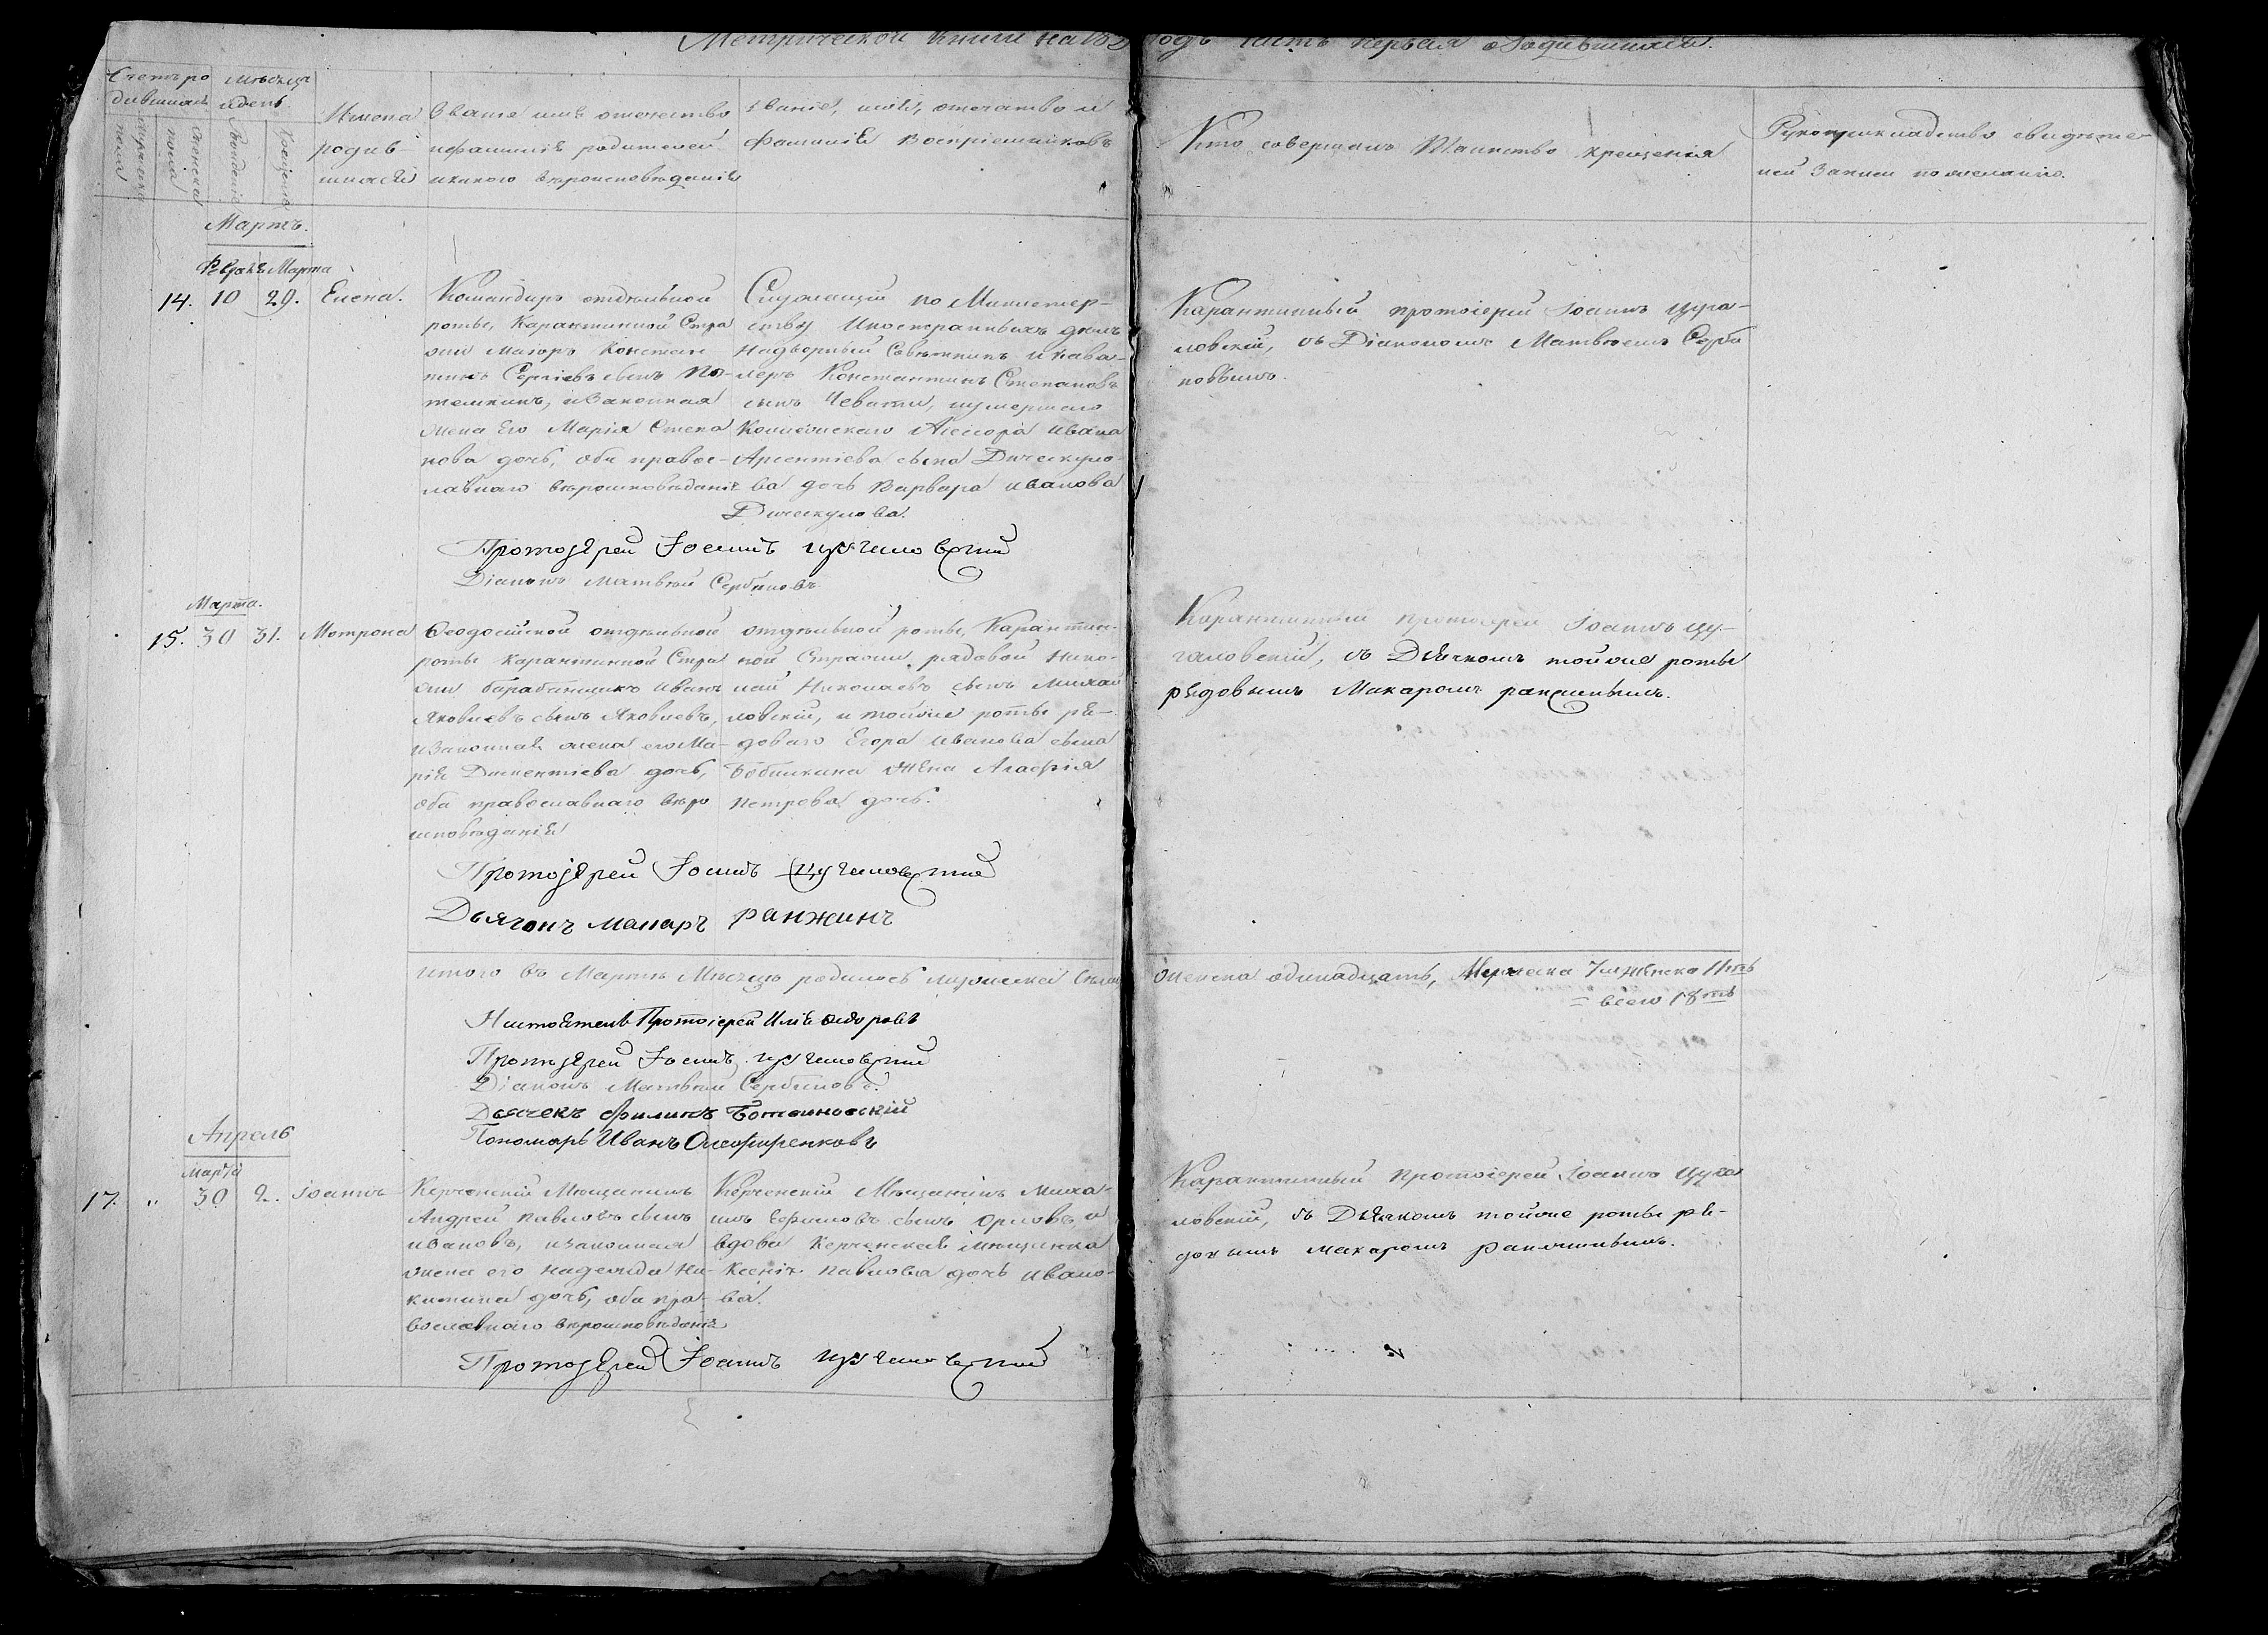 Метрической книги на 18 годъ часть первая о родившихся.
Счетъ ро
дившихся
Мѣсяцъ
и день.
Мужеска
пола
Женска
пола
Рожденія
Крещенія
Имена
родив
шихся
Званіе имя отечество
и фамилія родителей
и какого вѣроисповѣданія
Званіе, имя, отечество и
фамилія Воспріемниковъ
Кто совершалъ Таинство крещенія
Рукоприкладство свидѣте
лей записи по желанію.
Мартъ.
Февраля Марта
14. 10 29. Елена.
Командиръ отдѣльной
роты, Карантинной Стра
жи Маіоръ Констан
тинъ Сергіевъ сынъ По-
темкинъ, и законная
жена Его Марія Степа
нова дочь, оба правос-
лавнаго вѣроисповѣданія
Служащій по Министер-
ству Иностранныхъ дѣлъ
Надворный Совѣтникъ и кава-
леръ Константинъ Степановъ
сынъ умершаго
Коллежскаго Асессора Ивана
Арсентіева сына Дическуло
ва дочь Варвара Иванова
Дическулова.
Карантинный протоіерей Іоаннъ Цуга-
ловскій, съ Діакономъ Матвѣемъ Серби
новымъ.
Протоіерей Іоаннъ Цугаловскій
Діаконъ Матвѣй Сербиновъ
Марта.
15. 30 31. Матрона
Ѳеодосійской отдѣльной
роты Карантинной Стра
жи барабанщикъ Иванъ
Яковлевъ сынъ Яковлевъ,
и законная жена его Ма-
рія Дементіева дочь,
оба православнаго вѣро
исповѣданія
отдѣльной роты, Карантин-
ной Стражи рядовой Нико-
лай Николаевъ сынъ Михай
ловскій, и тойже роты ря-
доваго Егора Иванова сына
Бобылкина жена Агафія
Петрова дочь.
Карантинный протоіерей Іоаннъ Цу-
галовскій, съ Дьячкомъ тойже роты
рядовымъ Макаромъ ранжинымъ.
Протоіерей Іоаннъ Цугаловскій
Дьячокъ Макаръ ранжинъ
Итого въ Мартѣ Мѣсяцѣ родилось мужеска седмь
женска одинадцать, Мужеска 7 и женска 11ть
= всего 18ть
Настоятель Протоіерей Илія
Протоіерей Іоаннъ Цугаловскій
Діаконъ Матвѣй Сербиновъ.
Дьячекъ Филипъ
Пономарь Иванъ Олефиренковъ
Апрель
Марта
17. " 30 2. Іоаннъ
Керченскій Мѣщанинъ
Андрей Павловъ сынъ
Ивановъ, и законная
жена его Надежда Ни-
китина дочь, оба пра-
вославнаго вѣроисповѣданія
Керченскій Мѣщанинъ Миха-
илъ Ефимовъ сынъ Орловъ, и
вдова Керченская мѣщанка
Ксенія Павлова дочь Ивано-
ва.
Карантинный протоіерей Іоаннъ Цуга
ловскій, съ Дьячкомъ тойже роты ря-
довымъ Макаромъ ранжинымъ.
Протоіерей Іоаннъ Цугаловскій